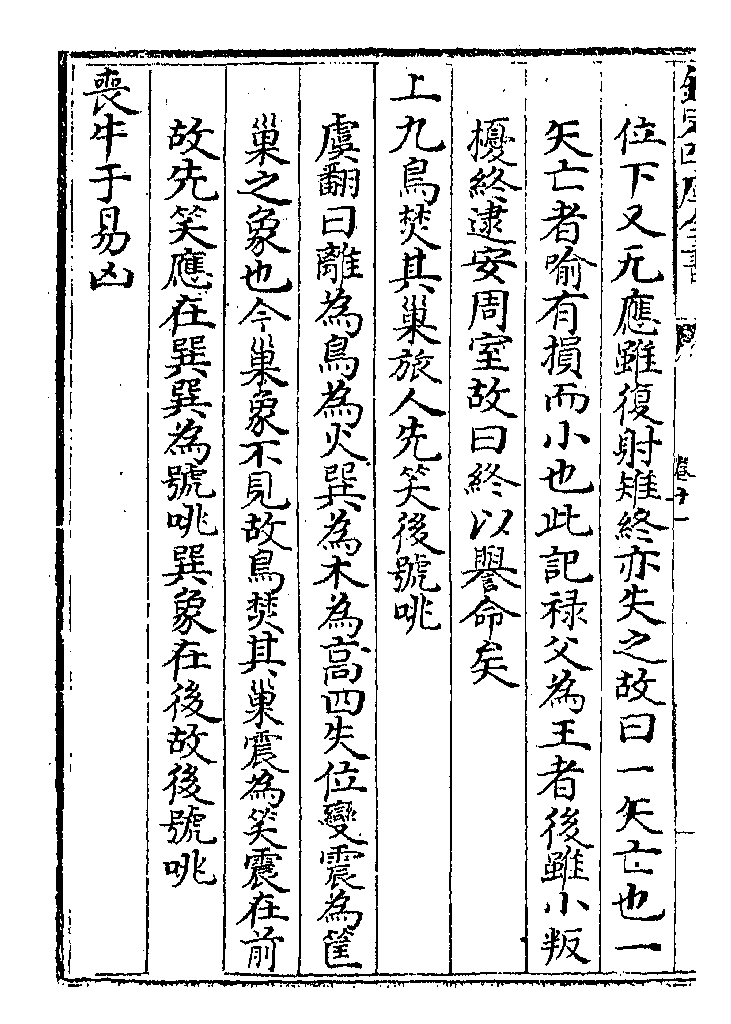 欽定四庫全書
卷十一
位下又无應雖復射雉終亦失之故曰一矢亡也一
矢亡者喻有損而小也此記禄父為王者後雖小叛
擾終逮安周室故曰終以譽命矣
上九鳥焚其巢旅人先笑後號咷
虞翻曰離為鳥為火巽為木為高四失位變震為筐
巢之象也今巢象不見故鳥焚其巢震為笑震在前
故先笑應在巽巽為號咷巽象在後故後號咷
喪牛于易凶